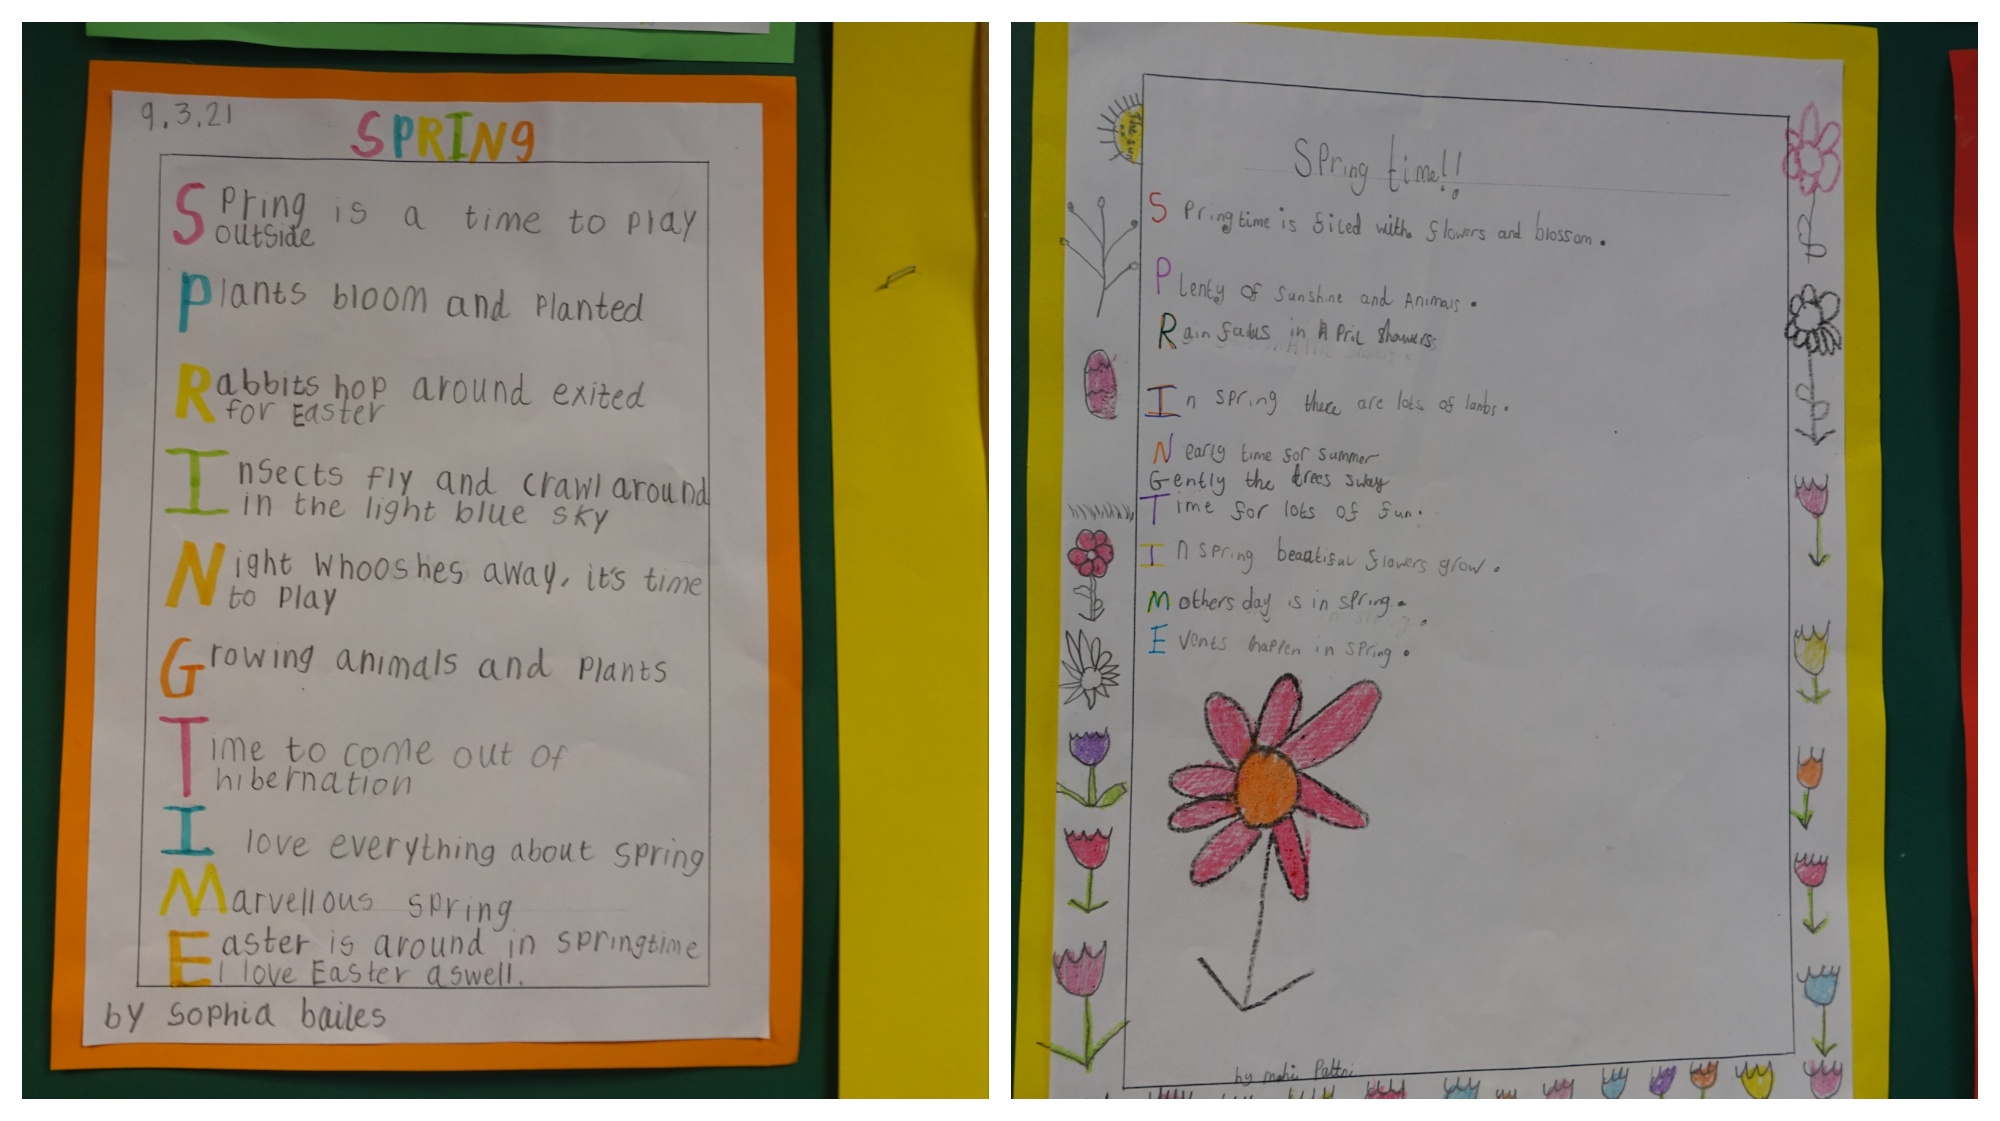 9.3.21
SPRING
Spring is a time to play
outside
Plants bloom and planted
Rabbits hop around exited
for Easter
Insects fly and crawl around
in the light blue sky
Night whooshes away, it's time
to play
Growing animals and plants
Time to come out of
hibernation
I love everything about spring
Marvellous spring
Easter is around in springtime
I love Easter aswell.
by Sophia bailes
The sun
Spring time!!
Springtime is filed with flowers and blossom.
Plenty of sunshine and Animals.
Rain falls in April showers
In spring there are lots of lambs.
Nearly time for summer
Gently the trees sway
Time for lots of fun.
In spring beautiful flowers grow.
Mothers day is in spring.
Events happen in spring.
by Pattni